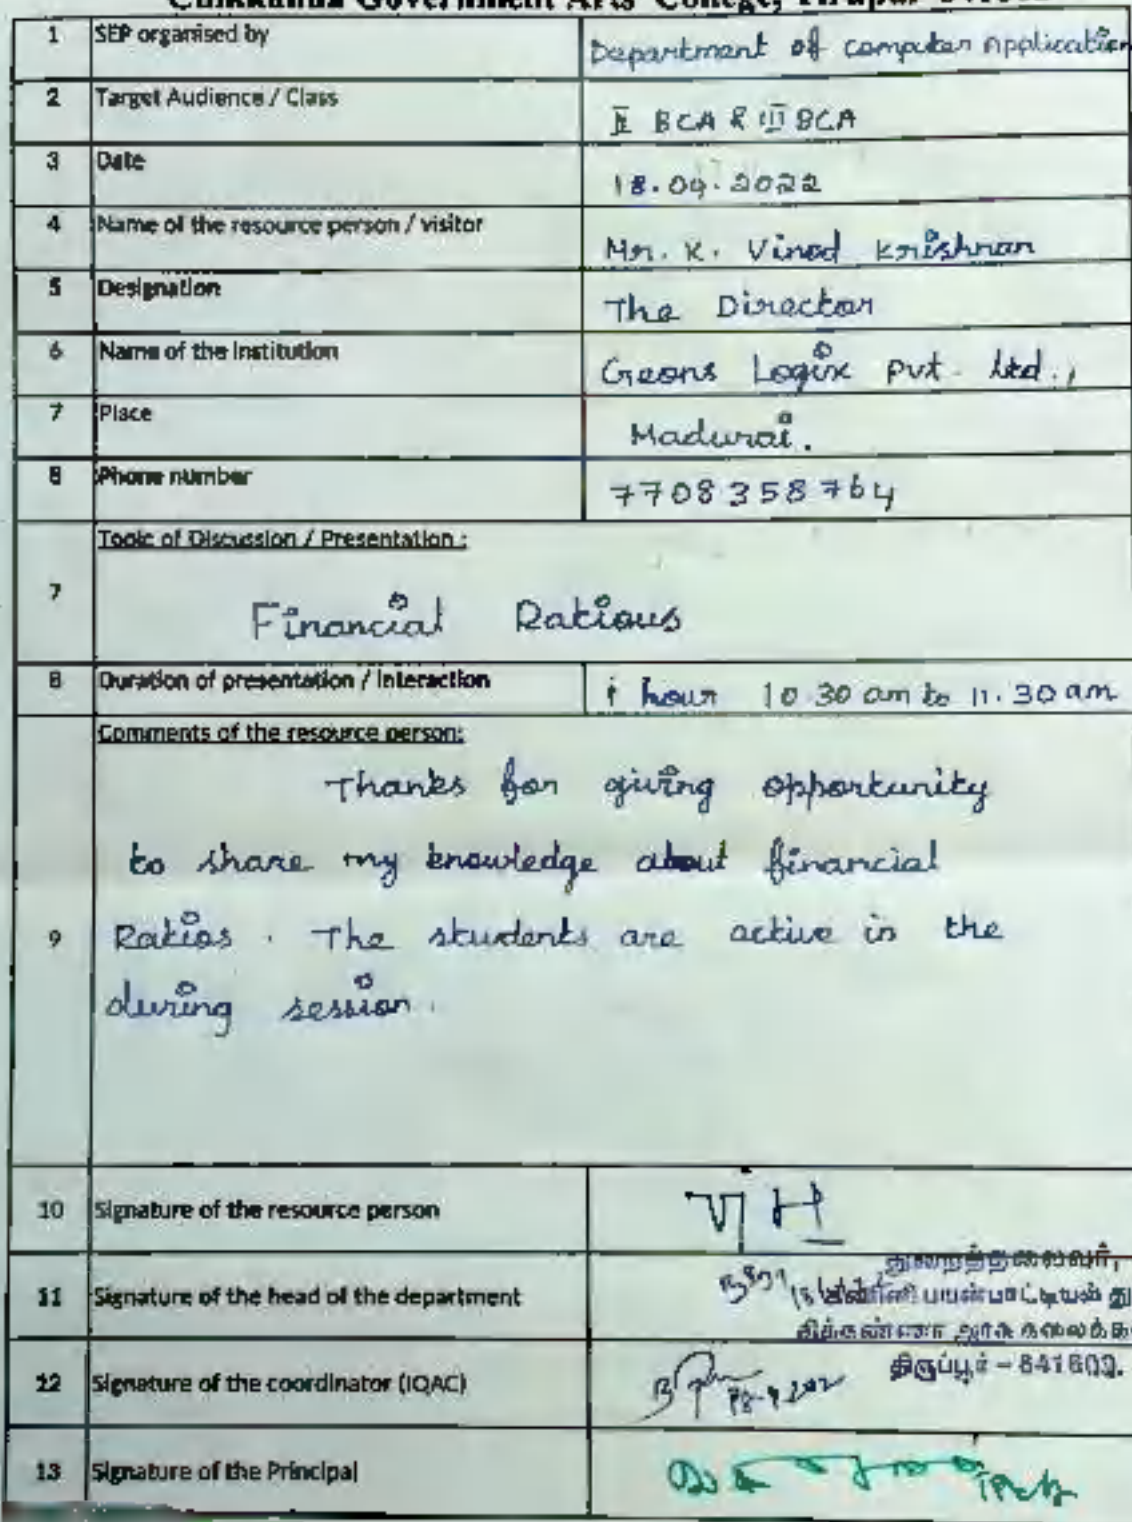 Government Arts College, Tirupur
1 SEP organised by Department of computer Application
2 Target Audience / Class II BCA & III BCA
3 Date 18.04.2022
4 Name of the resource person / visitor Mr. K. Vinod Krishnan
5 Designation The Director
6 Name of the Institution Geons Logix Pvt. Ltd.,
7 Place Madurai.
8 Phone number 7708358764
Topic of Discussion / Presentation :
7 Financial Ratious
8 Duration of presentation / Interaction 1 hour 10.30 am to 11.30 am
Comments of the resource person:
Thanks for giving opportunity
to share my knowledge about financial
9 Ratios. The students are active in the
during session.
10 Signature of the resource person
துறைத்தலைவர்,
11 Signature of the head of the department பயன்பாட்டியல் து
சிக்கண்ணா அரசு கலைக்க
திருப்பூர் – 641602.
12 Signature of the coordinator (IQAC)
13 Signature of the Principal